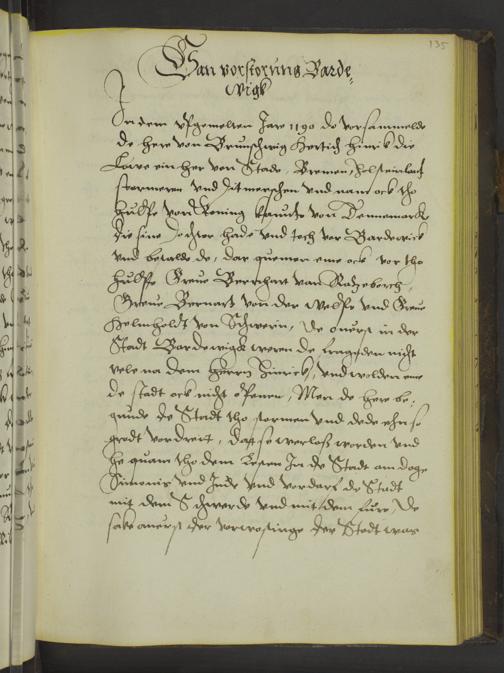 135
Van vorstorung Barde-
wigk
In dem vpgemelten Jare 1190 do vorsammelde
de here von Brunschwig Hertich Hinrik die
Lauwe ein her von Stade, Bremen, Holsteinlandt
stormeren vnd Ditmerschen vnd nam ock tho
hulffe von Koning Knutho von Dennemarck
die sine Dochter hadde vnd toch vor Bardewick
vnd belade de, dar quemen eme ock vor tho
hulffe Greue Bernhart van Ratzeborch,
Greue Bernart von der Welpe vnd Greue
Helmholdt von Schwerin, De ouerst in der
Stadt Bardewigk weren de fragden nicht
vele na dem Herrn Hinrick, vnd wolden eme
de stadt ock nicht openen, Men de here be-
gunde de Stadt tho stormen vnd dede ehn so
grodt vordreit, dat se werloß worden vnd
he quam tho dem Lesten In de Stadt am dage
Simonis vnd Jude vnd vordarf de Stadt
mit dem Schwerde vnd mit dem fure, De
sake auerst der vorwostinge der Stadt was